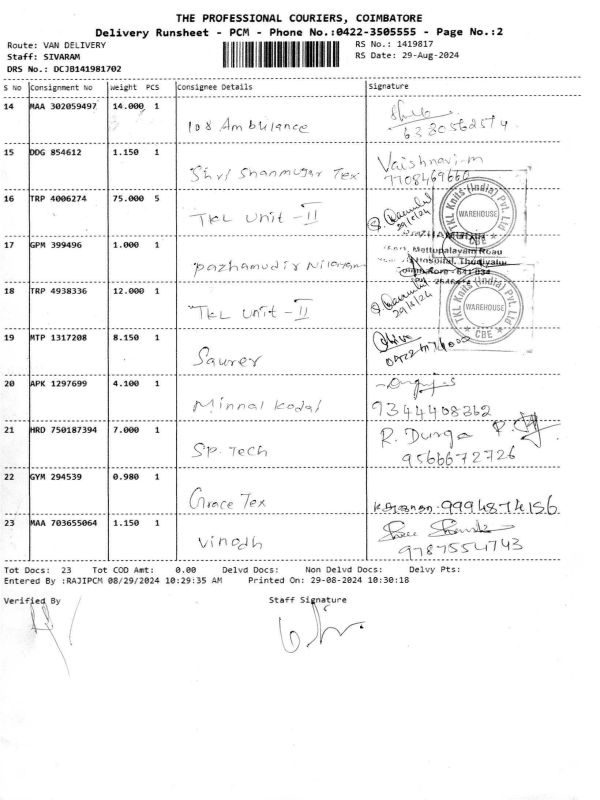 THE PROFESSIONAL COURIERS, COIMBATORE
Delivery Runsheet - PCM - Phone No.:0422-3505555 - Page No.:2
Route: VAN DELIVERY
RS No.: 1419817
Staff: SIVARAM
RS Date: 29-Aug-2024
DRS No.: DCJB141981702
S No Consignment No Weight PCS Consignee Details Signature
14 MAA 302059497 14.000 1
108 Ambulance
6380562574
15 DDG 854612 1.150 1
Shri Shanmugar Tex
Vaishnavi-m
7708469660
16 TRP 4006274 75.000 5
TKL Unit - II
29/8/24
TKL Knits (India) Pvt. Ltd
WAREHOUSE
CBE
17 GPM 399496 1.000 1
Pazhamudir Nilayam
Mettupalayam Road
Hospital, Thudiyalur
Coimbatore - 641 034
18 TRP 4938336 12.000 1
TKL Unit - II
29/8/24
TKL Knits (India) Pvt. Ltd
WAREHOUSE
CBE
19 MTP 1317208 8.150 1
Saurer
20 APK 1297699 4.100 1
Minnal Kodal
9344408362
21 HRD 750187394 7.000 1
SP. Tech
R. Durga
9566672726
22 GYM 294539 0.980 1
Grace Tex
9994874156
23 MAA 703655064 1.150 1
Vinodh
9787554743
Tot Docs: 23 Tot COD Amt: 0.00 Delvd Docs: Non Delvd Docs: Delvy Pts:
Entered By :RAJIPCM 08/29/2024 10:29:35 AM Printed On: 29-08-2024 10:30:18
Verified By Staff Signature